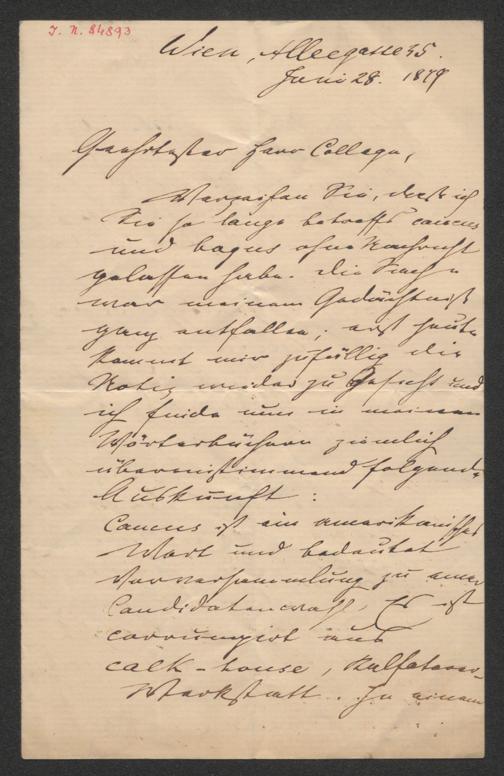 I. N. 84893
Wien, Alleegasse 35.
Juni 28. 1879
Geehrtester Herr Collega,
Verzeihen Sie, daß ich
Sie so lange betreffs caucus
und bogus ohne Nachricht
gelassen habe. Die Sache
war meinem Gedächtniß
ganz entfallen; erst heute
kommt mir zufällig die
Notiz wieder zu Gesicht und
ich finde nun in meinen
Wörterbüchern ziemlich
übereinstimmend folgende
Auskunft:
Caucus ist ein amerikanisches
Wort und bedeutet
Vorversammlung zu einer
Candidatenwahl. Es ist
corrumpirt aus
calk-house, Kalfaterer-
Werkstatt. In einem